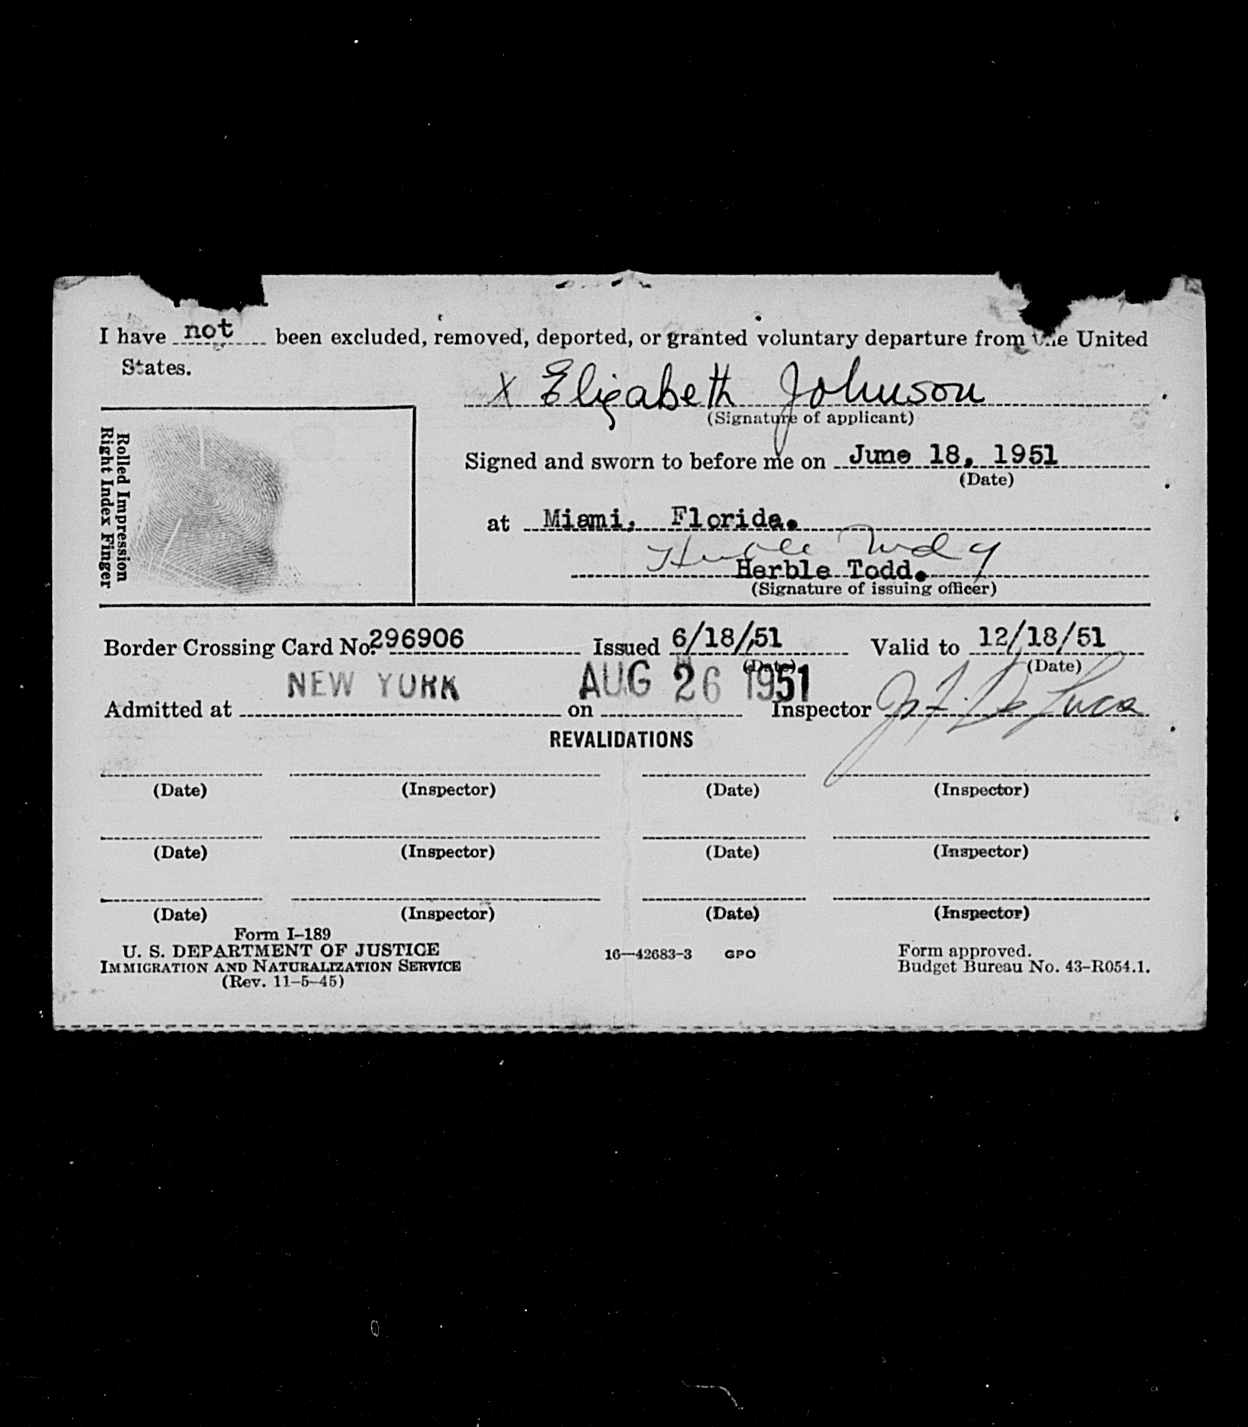 I have not been excluded, removed, deported, or granted voluntary departure from the United
States.
X Elizabeth Johnson
(Signature of applicant)
Rolled Impression
Right Index Finger
Signed and sworn to before me on June 18, 1951
(Date)
at Miami, Florida.
Herble Todd.
(Signature of issuing officer)
Border Crossing Card No. 296906 Issued 6/18/51 Valid to 12/18/51
(Date) (Date)
NEW YORK AUG 26 1951
Admitted at on Inspector
REVALIDATIONS
(Date) (Inspector) (Date) (Inspector)
(Date) (Inspector) (Date) (Inspector)
(Date) (Inspector) (Date) (Inspector)
Form I-189
U. S. DEPARTMENT OF JUSTICE
IMMIGRATION AND NATURALIZATION SERVICE
(Rev. 11-5-45)
16—42683-3 GPO
Form approved.
Budget Bureau No. 43-R054.1.